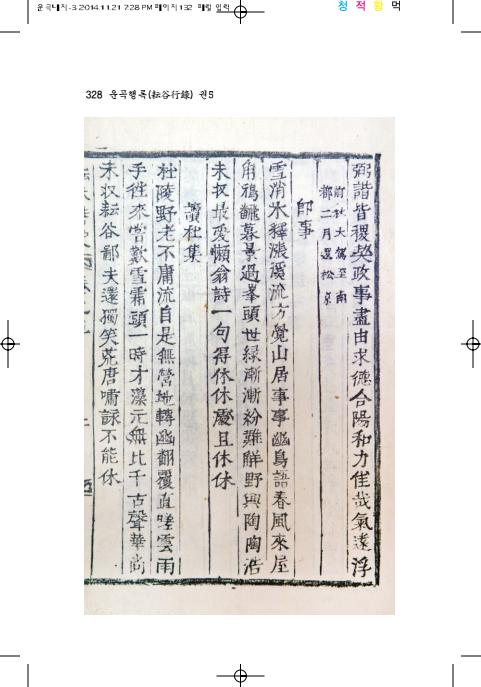 운곡내지-3.2014.11.21 7:28 PM 페이지132 매킬 입력
청 적 황 먹
328 운곡행록(耘谷行錄) 권5
弼諧皆稷契政事盡由求德合陽和力佳哉氣遠浮
前秋大駕至南
都二月還松京
卽事
雪消氷釋漲溪流方覺山居事事幽鳥語春風來屋
角鴉翻暮景過峯頭世緣漸漸紛難解野興陶陶浩
未収最愛懶翁詩一句得休休處且休休
讀杜集
杜陵野老不庸流自是無營地轉幽翻覆直嗟雲雨
手徃來嘗歎雪霜頭一時才藻元無比千古聲華尚
未収耘谷鄙夫還獨笑荒唐嘯詠不能休